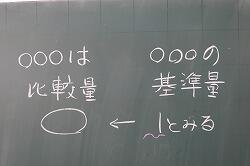 ○○○は
比較量
○○○の
基準量
← 1とみる